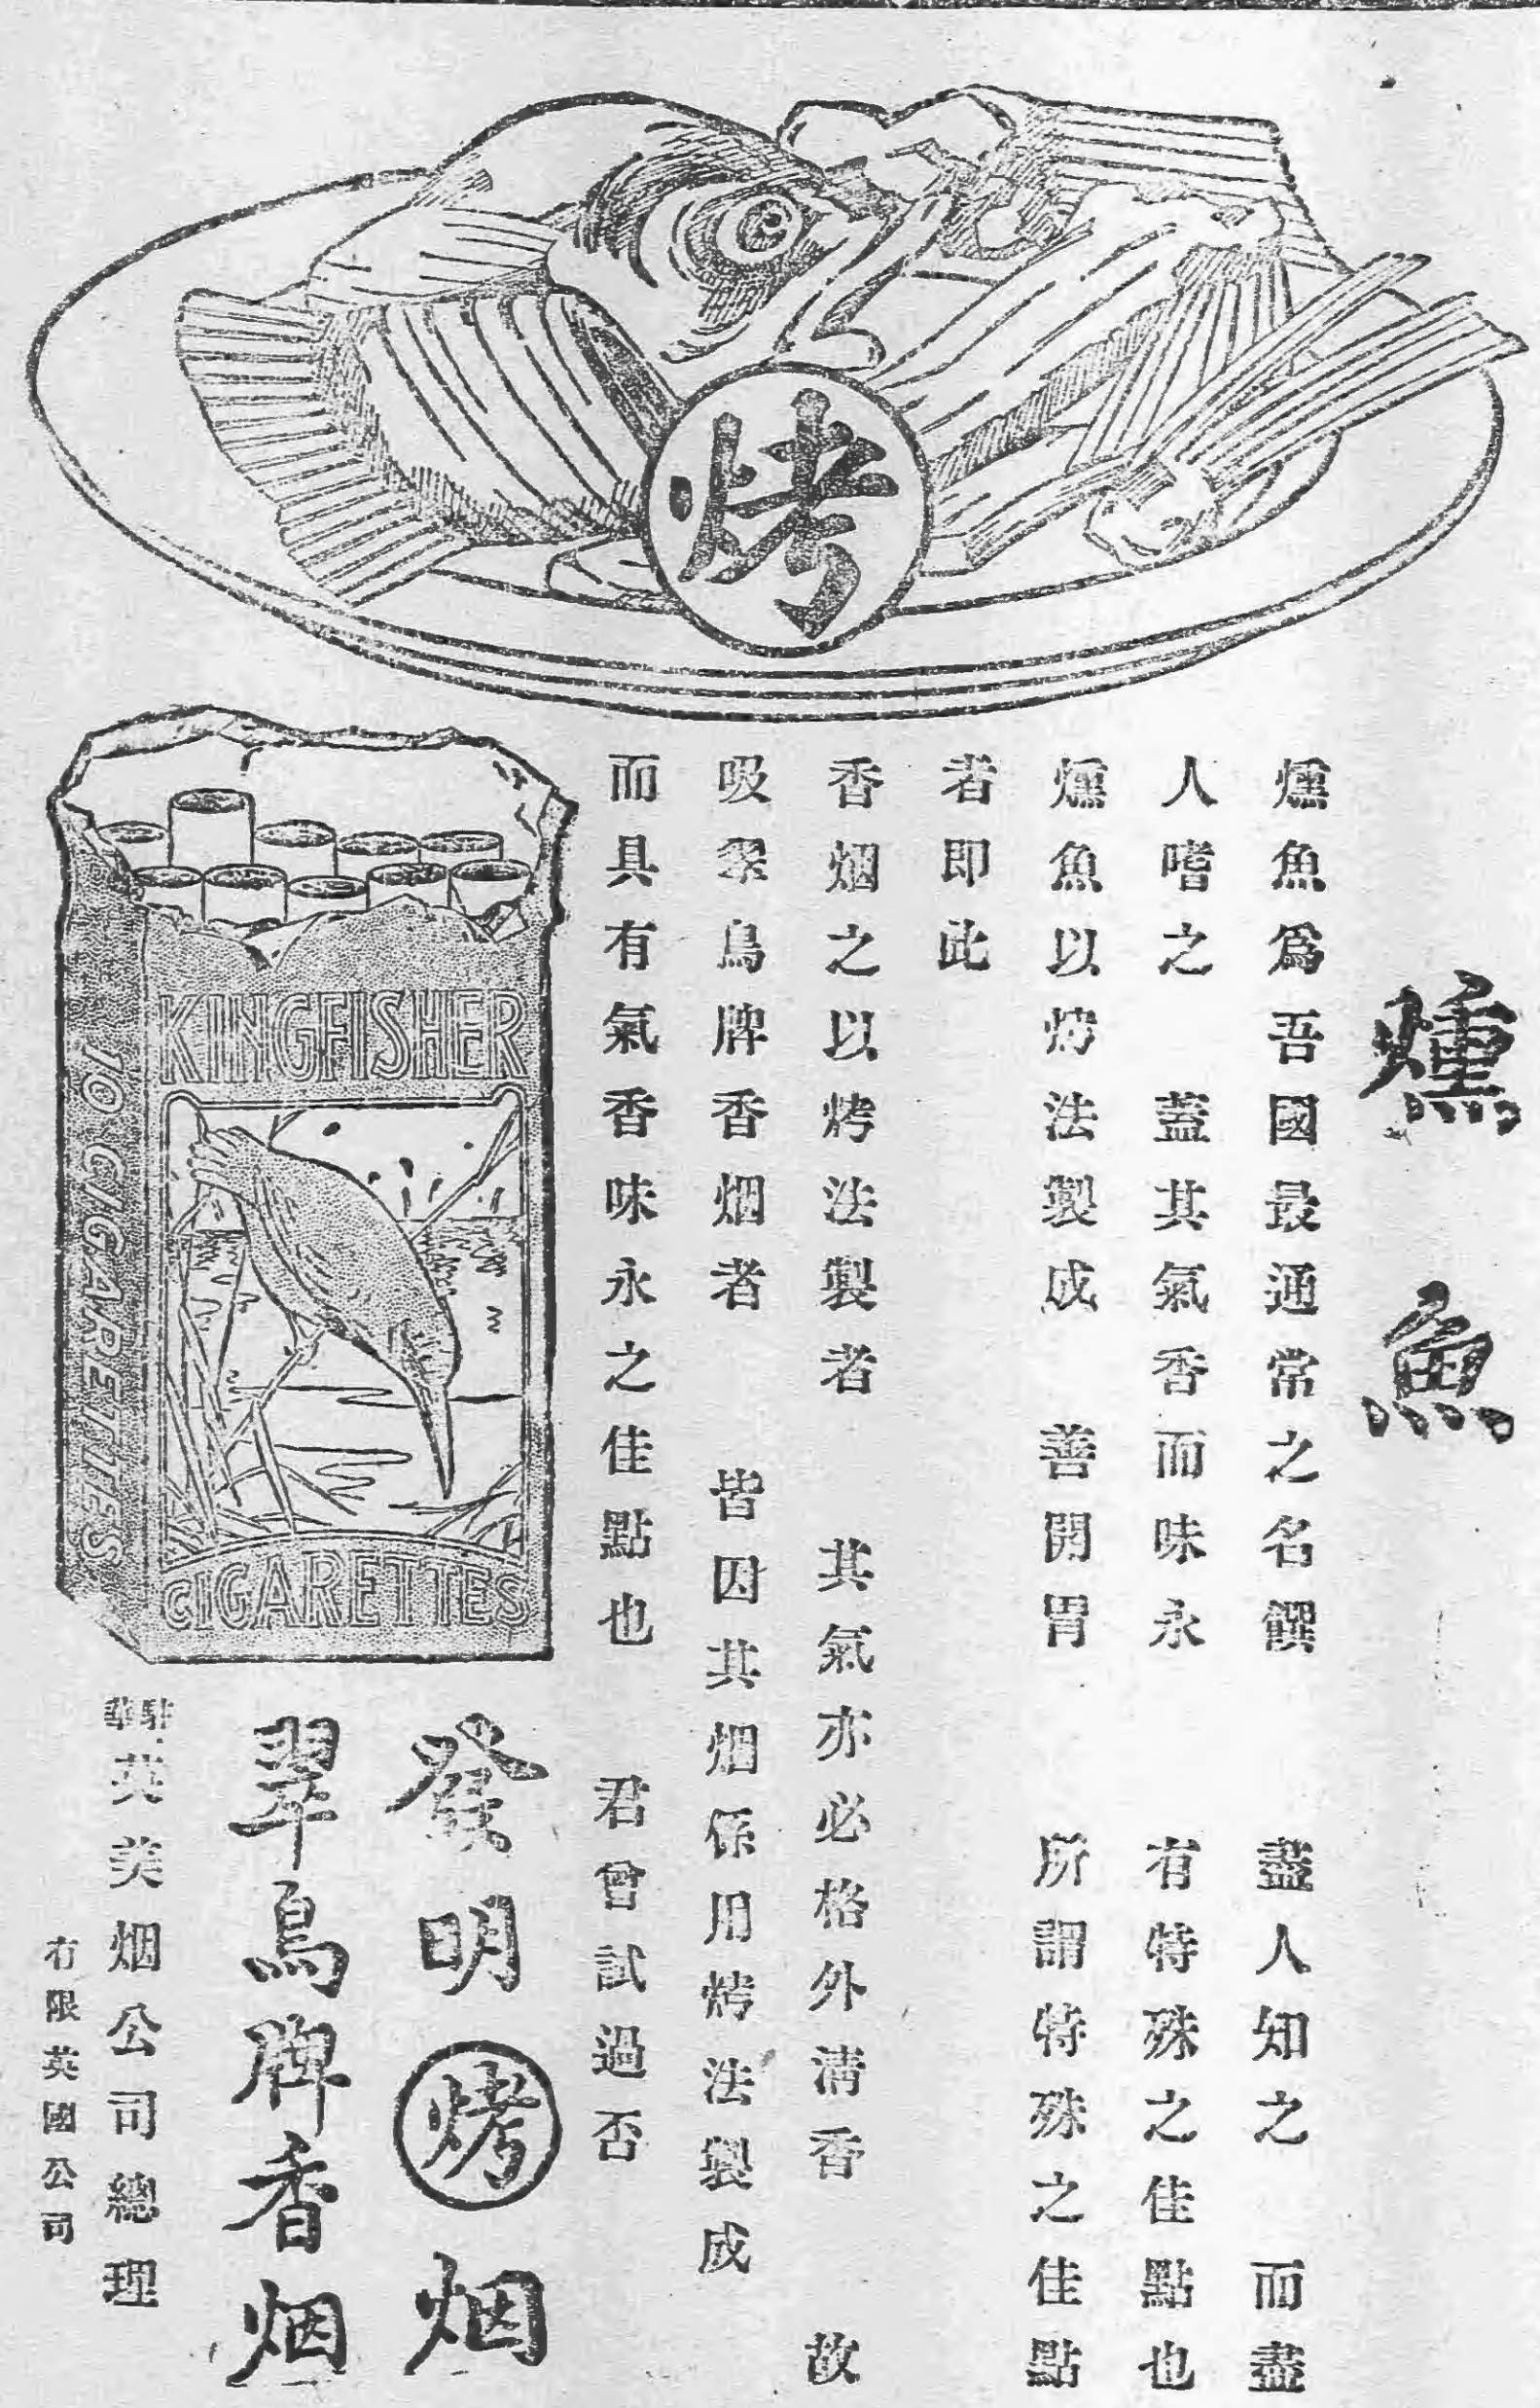 燻魚
燻魚爲吾國最通常之名饌 盡人知之 而盡
人嗜之 蓋其氣香而味永 有特殊之佳點也
燻魚以烤法製成 善開胃 所謂特殊之佳點
者即此
香烟之以烤法製者 其氣亦必格外淸香 故
吸翠鳥牌香烟者 皆因其烟係用烤法製成
而具有氣香味永之佳點也 君曾試過否
烤
KINGFISHER
CIGARETTES
10 CIGARETTES
發明烤烟
翠鳥牌香烟
駐華英美烟公司總理
有限英國公司